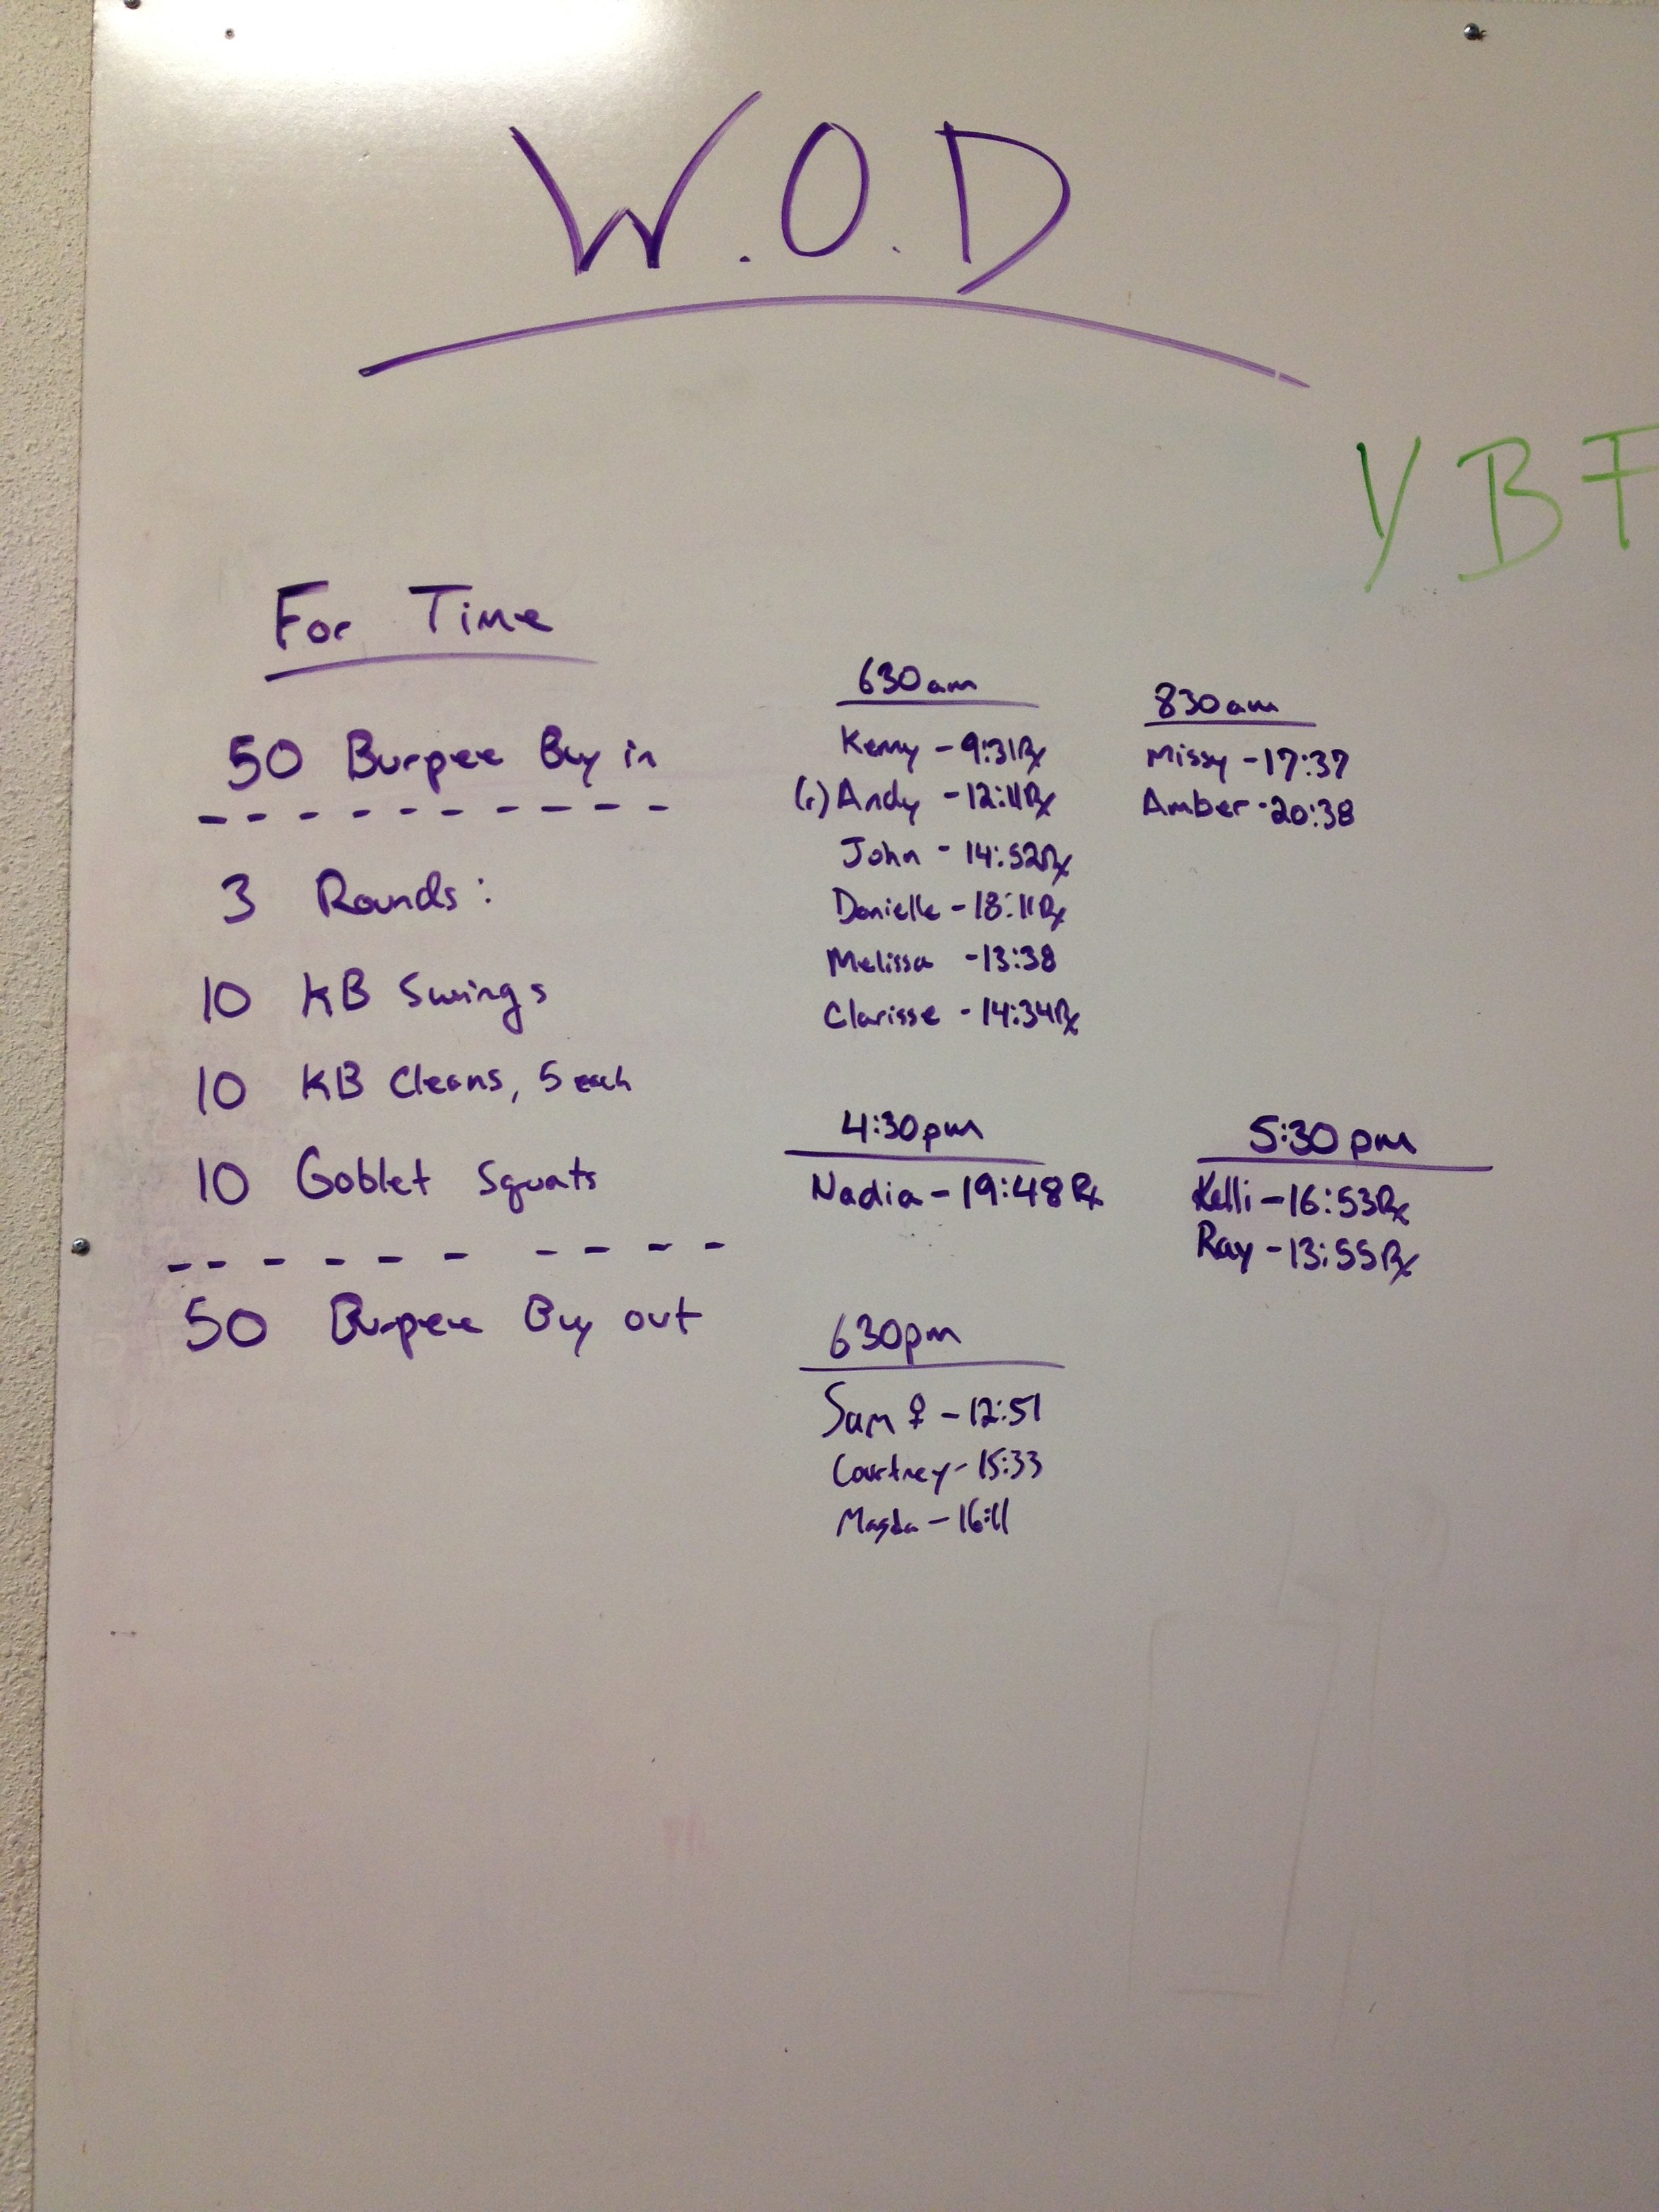 W.O.D
YBF
For Time
50 Burpee Buy in
3 Rounds:
10 KB Swings
10 KB Cleans, 5 each
10 Goblet Squats
50 Burpee Buy out
630am
Kenny - 9:31Rx
(r) Andy - 12:11Rx
John - 14:52Rx
Danielle - 18:11Rx
Melissa - 13:38
Clarisse - 14:34Rx
830am
Missy - 17:37
Amber - 20:38
4:30pm
Nadia - 19:48Rx
5:30pm
Kelli - 16:53Rx
Ray - 13:55Rx
630pm
Sam ♀ - 12:51
Courtney - 15:33
Magda - 16:11